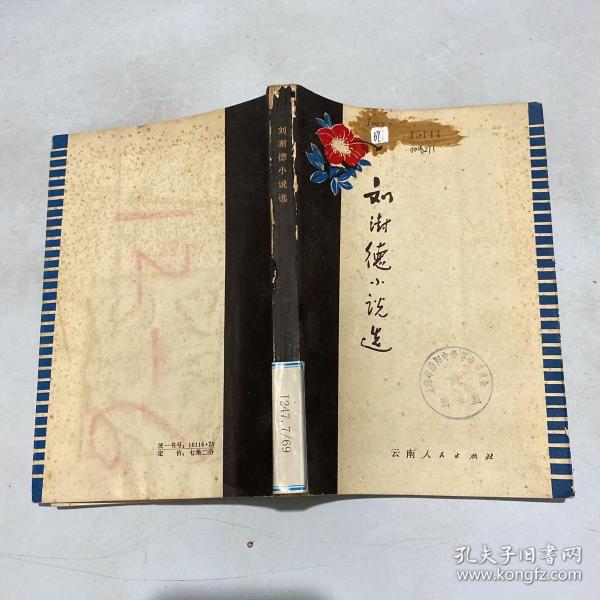 15144
005271
刘澍德小说选
云南人民出版社
刘澍德小说选
I247.7/69
12-6
统一书号：10116·75
定 价：七角二分
孔夫子旧书网
www.kongfz.com